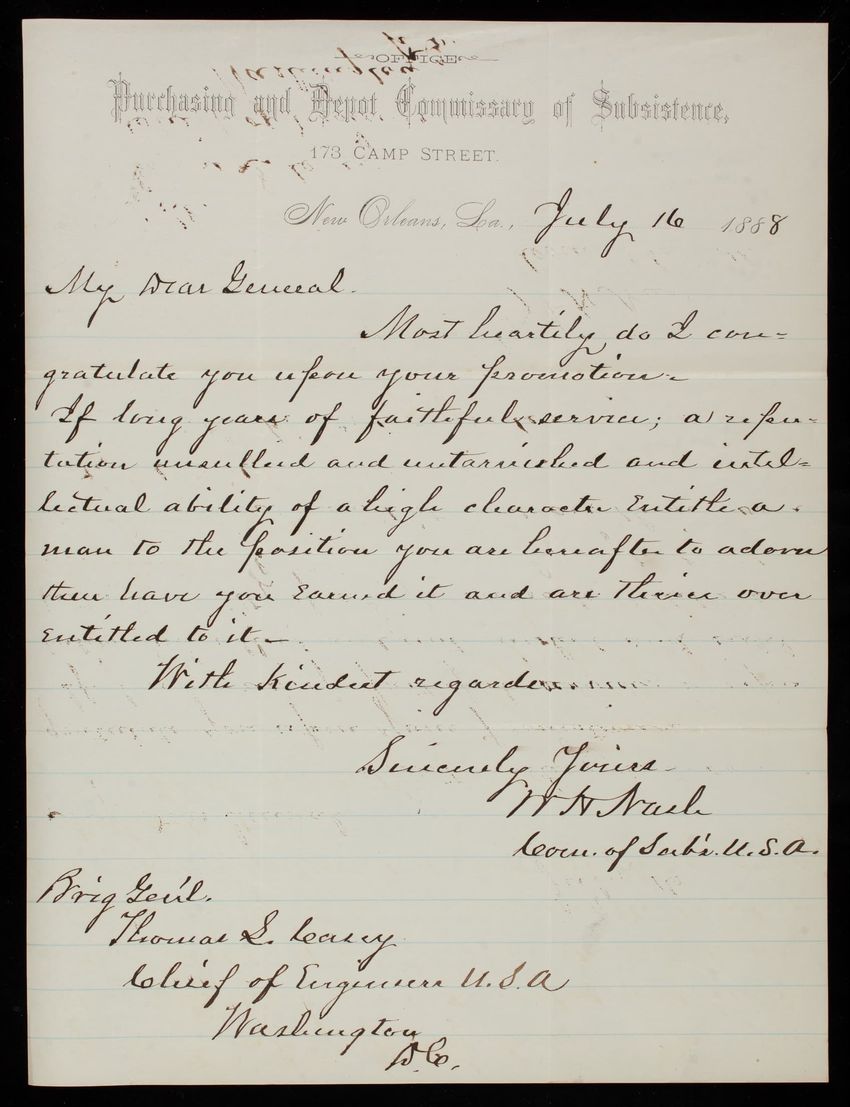 OFFICE
Purchasing and Depot Commissary of Subsistence,
173 CAMP STREET.
New Orleans, La., July 16 1888
My Dear General.
Most heartily do I con=
gratulate you upon your promotion.
If long years of faithful service; a repu=
tation unsullied and untarnished and intel=
lectual ability of a high character Entitle a
man to the position you are hereafter to adorn
then have you Earned it and are thrice over
Entitled to it—
With kindest regards
Sincerely Yours
W H Nash
Com. of Sub's. U.S.A.
Brig Gen'l.
Thomas L. Casey
Chief of Engineers U.S.A
Washington
D.C.